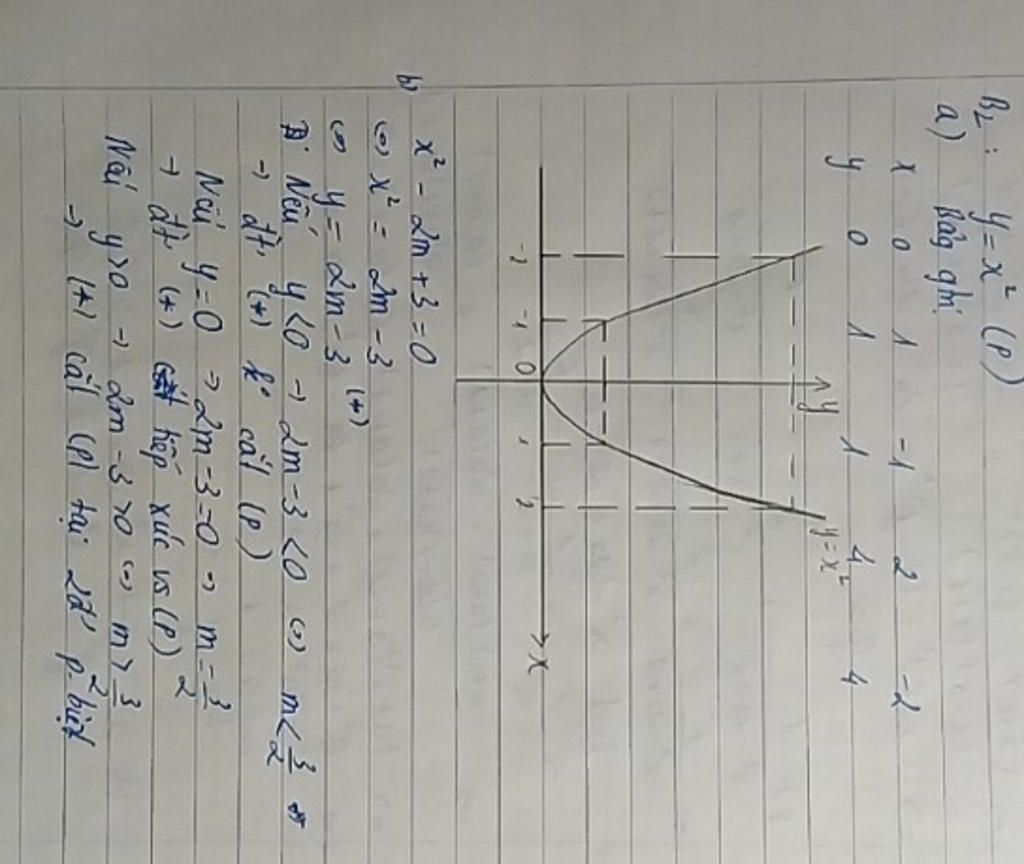 B2: y = x² (P)
a) Bảg gtrị
x 0 1 -1 2 -2
y 0 1 1 4 4
y
y=x²
-2 -1 0 1 2
x
b) x² - 2m + 3 = 0
(=) x² = 2m - 3
(=) y = 2m - 3 (*)
Nếu y < 0 → 2m - 3 < 0 (=) m < 3/2
→ đt (*) k° cắt (P)
Nếu y = 0 → 2m - 3 = 0 → m = 3/2
→ đt (*) tiếp xúc vs (P)
Nếu y > 0 → 2m - 3 > 0 (=) m > 3/2
→ (*) cắt (P) tại 2đ' p.biệt